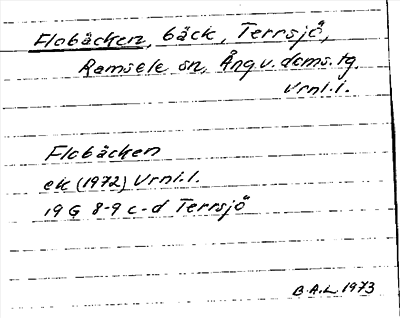 Flobäcken, bäck, Terrsjö,
Ramsele sn, Ång.v. doms.tg.
Vrnl.l.
Flobäcken
ek (1972) Vrnl.l.
19 G 8-9 c-d Terrsjö
B.A.L 1973